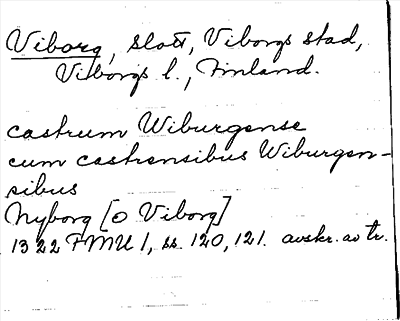 Viborg, slott, Viborgs stad,
Viborgs l., Finland.
castrum Wiburgense
cum castrensibus Wiburgen-
sibus
Nyborg [o Viborg]
1322 FMU 1, ss. 120, 121. avskr. av tr.